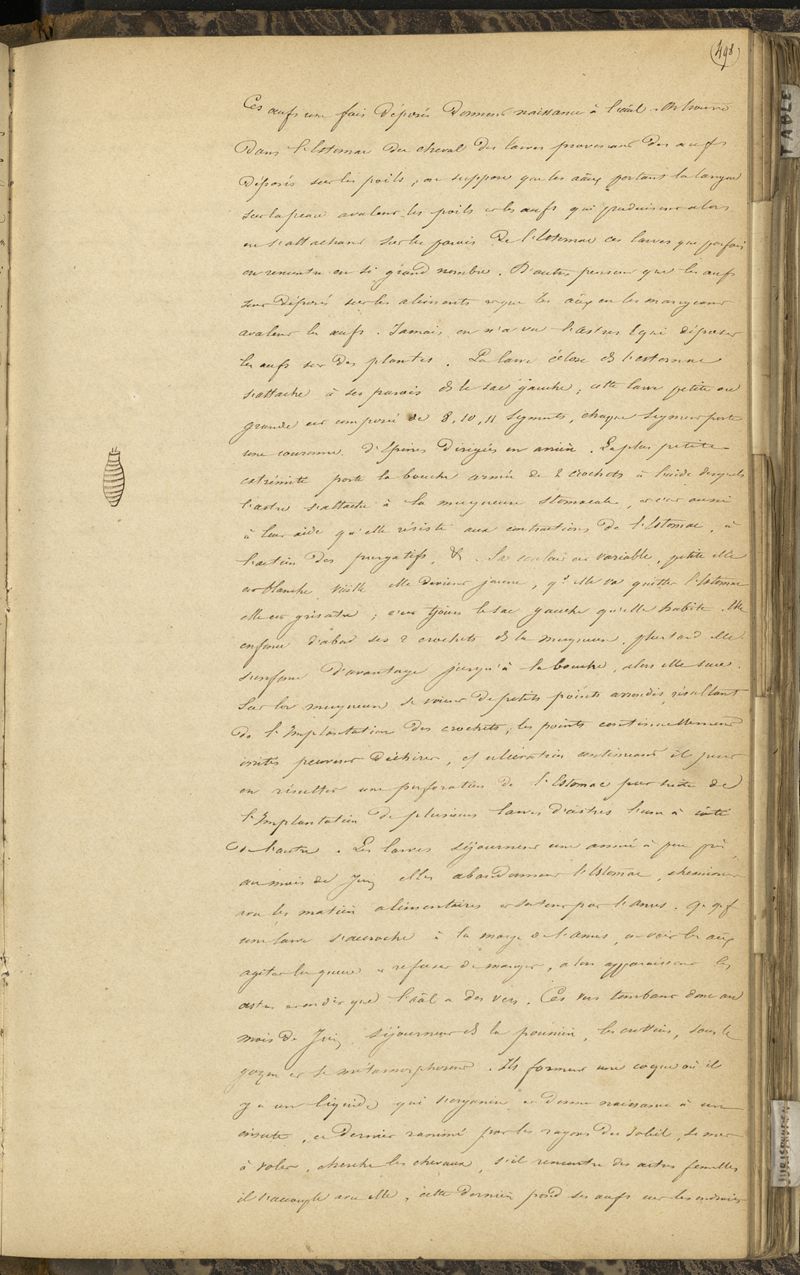 498
TABLE
Ces œufs une fois déposés donnent naissance à l'œst. On trouve
Dans l'Estomac du cheval des larves provenant des œufs
Déposés sur les poils ; on suppose que les aãux portant la langue
sur la peau avalent les poils et les œufs qui produisent alors
en s'attachant sur les parois de l'Estomac ces larves que parfois
on rencontre en si grand nombre. D'autres pensent que les œufs
sont déposés sur les aliments et que les aãux en les mangeant
avalent les œufs. Jamais on n'a vu l'œstres équi déposer
les œufs sur des plantes. La larve éclose ds l'estomac
s'attache à ses parois ds le sac gauche ; cette larve petite ou
grande est composée de 8, 10, 11 segments, chaque segment porte
une couronne d'épines dirigées en arrière. La plus petite
extrémité porte la bouche armée de 2 crochets à l'aide desquels
l'œstre s'attache à la muqueuse stomacale, et c'est aussi
à leur aide qu'elle résiste aux contractions de l'Estomac, à
l'action des purgatifs, &. Sa couleur est variable, petite elle
est blanche, vieille elle devient jaune, qd elle va quitter l'Estomac
elle est grisatre ; c'est tjours le sac gauche qu'elle habite. Elle
enfonce d'abord ses 2 crochets ds la muqueuse, plus tard elle
s'enfonce d'avantage jusqu'à la bouche, alors elle suce.
Sur la muqueuse se voient de petits points arrondis, résultant
de l'Implantation des crochets, les points continuellement
irrités peuvent déchirer, et ulcération continuant il peut
en résulter une perforation de l'Estomac par suite de
l'Implantation de plusieurs larves d'œstres l'une à côté
de l'autre. Les larves séjournent une année à peu près,
au mois de Juin elles abandonnent l'Estomac, cheminent
avec les matières alimentaires et sortent par l'anus. Qqf
une larve s'accroche à la marge de l'anus, on voit les aãux
agiter la queue et refuser de manger, alors apparaissent les
œstres et on dit que l'aãl a des vers. Ces vers tombent donc au
mois de Juin, séjournent ds la poussière, les crottins, sous le
gazon et se métamorphosent. Ils forment une coque où il
y a un liquide qui s'organise et donne naissance à un
insecte, ce dernier ranimé par les rayons du soleil, se met
à voler, cherche les chevaux, s'il rencontre des œstres femelles
il s'accouple avec elle, cette dernière pond ses œufs sur les endroits
JURISPRUDEN